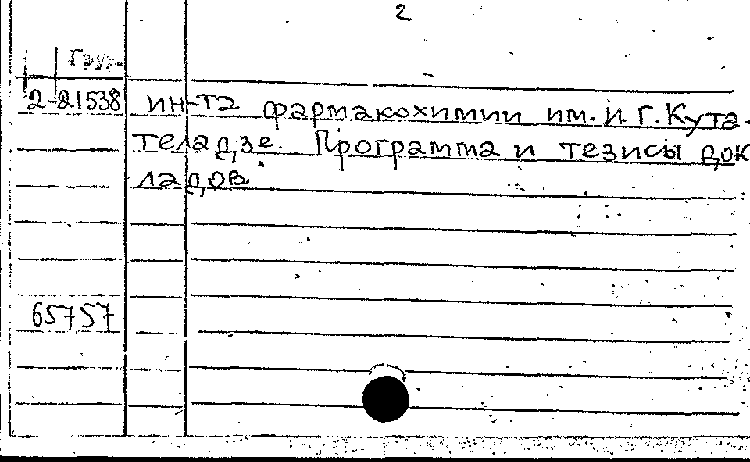 2
Груз.
2-21538 ин-та фармакохимии им. И.Г. Кута-
теладзе. Программа и тезисы док
ладов.
65757